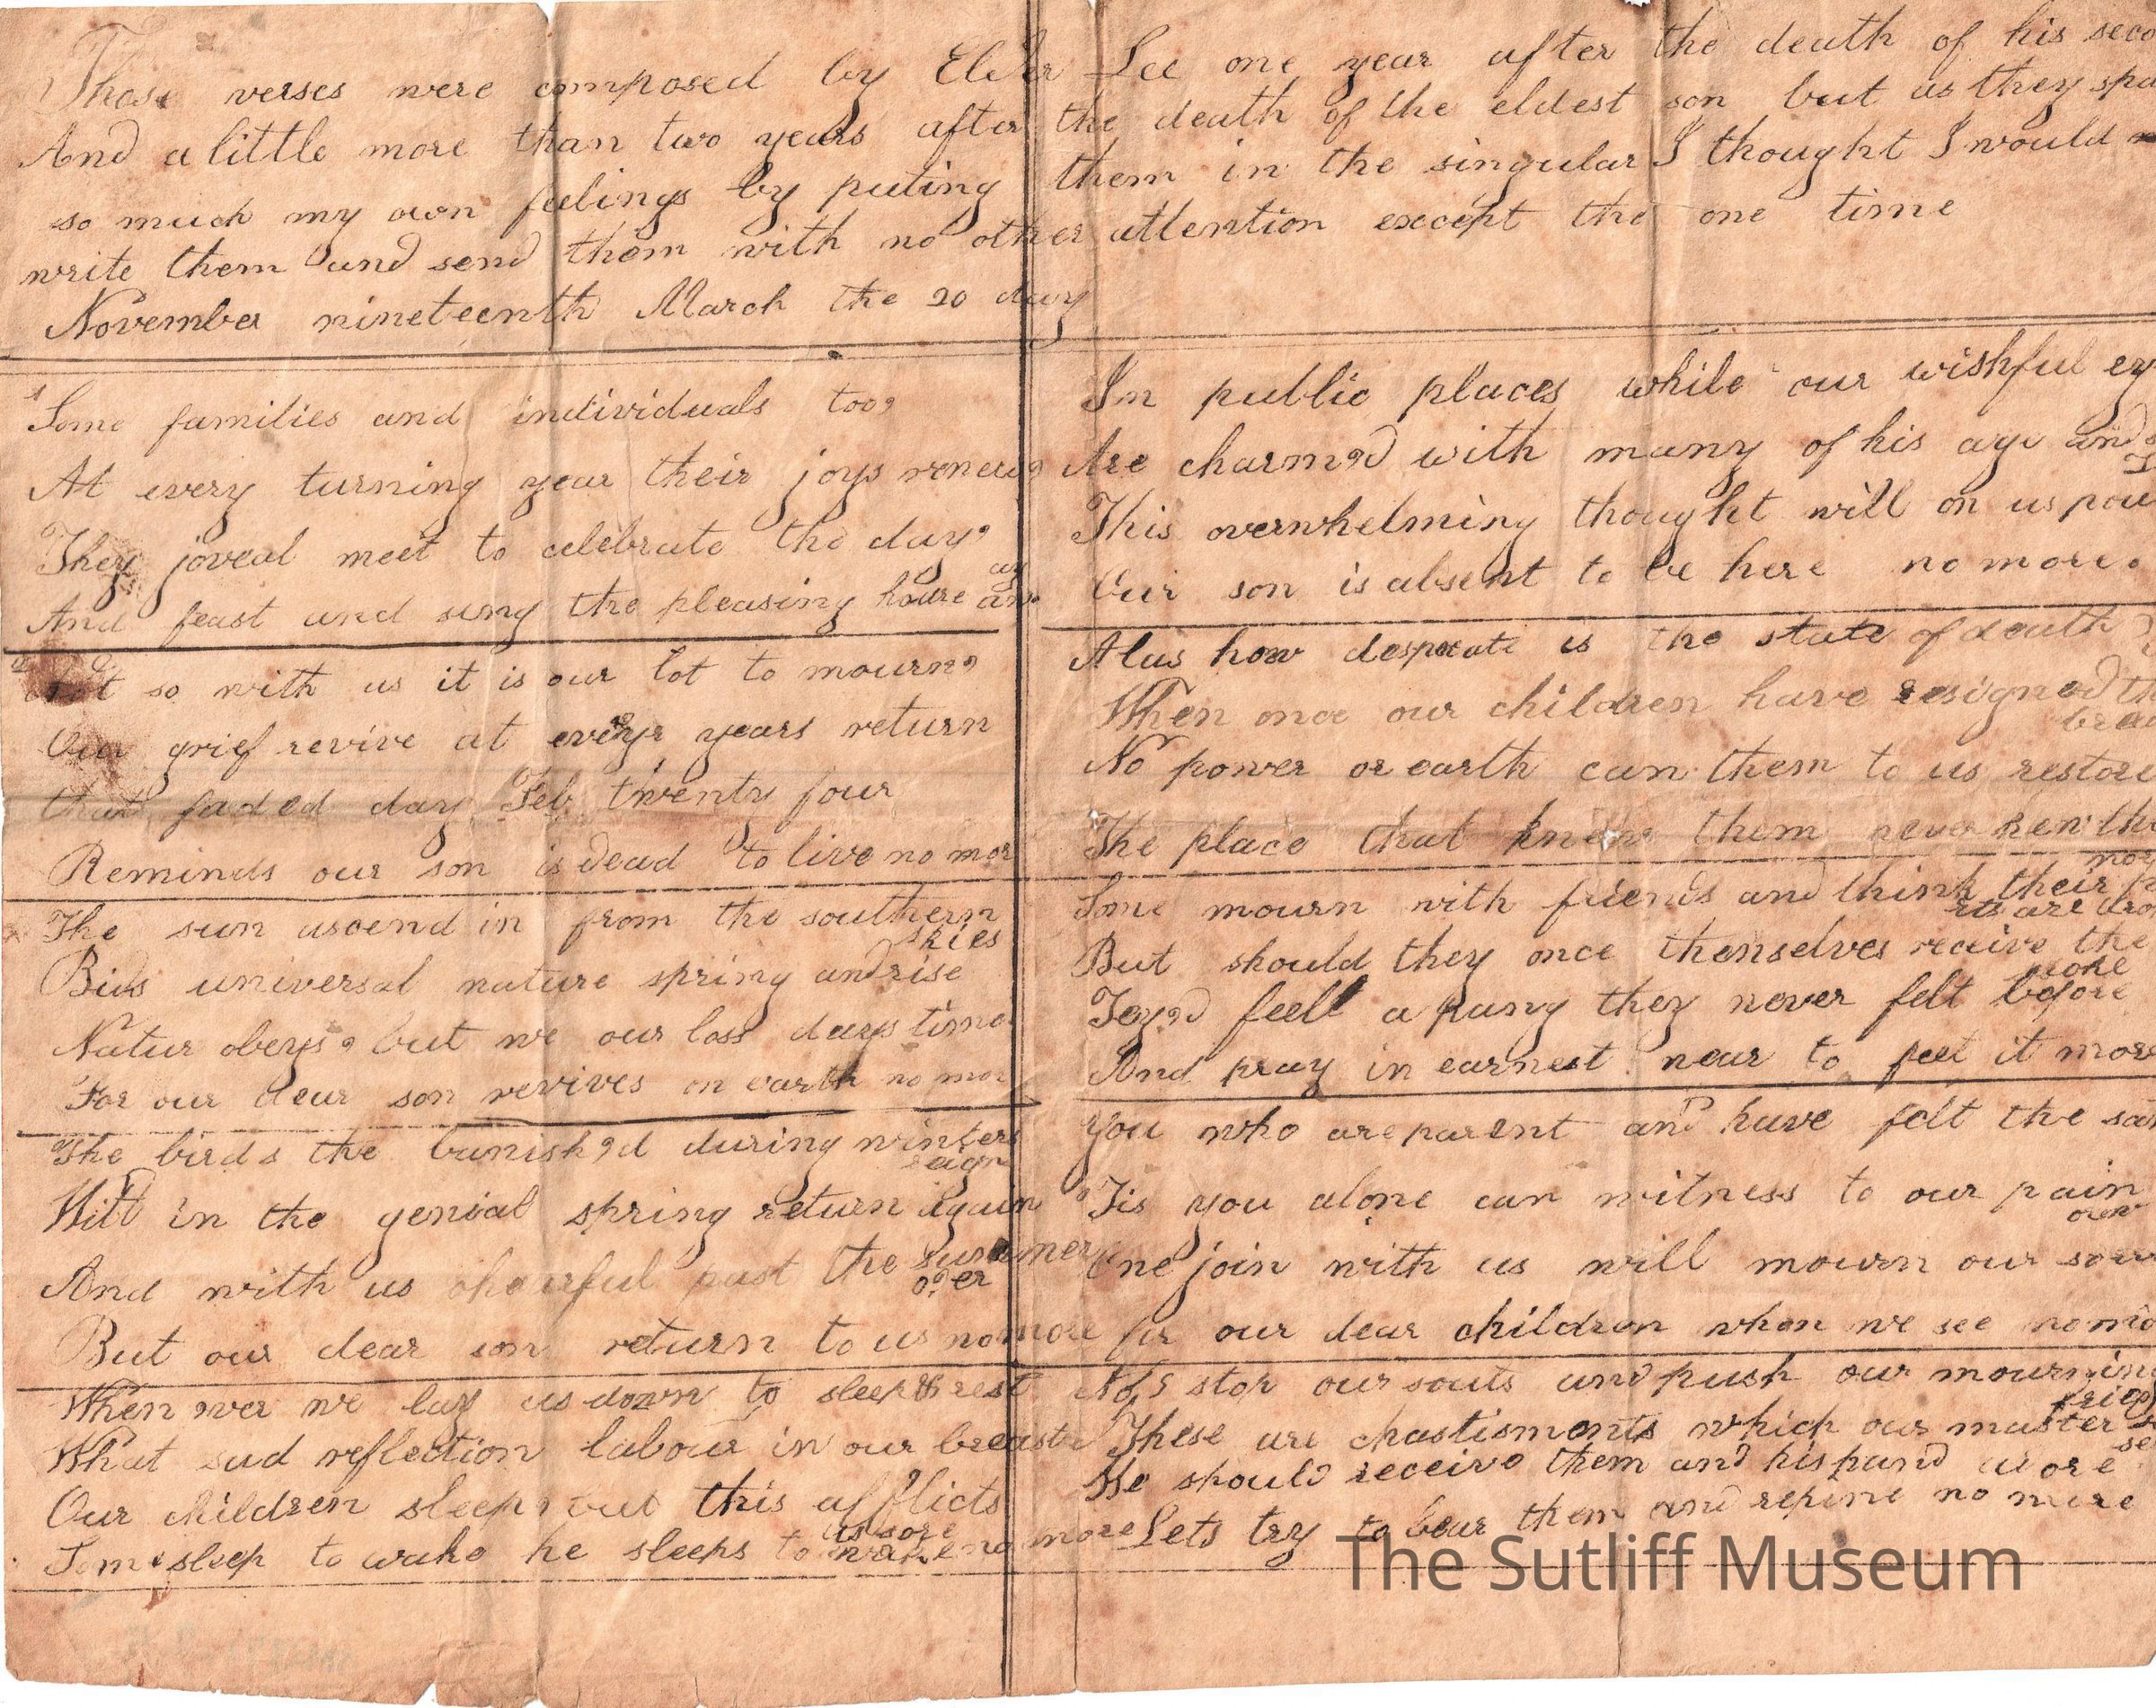 Those verses were composed by Elder Lee one year after the death of his seco
And a little more than two years after the death of the eldest son but as they spa
so much my own feelings by puting them in the singular I thought I would
write them and send them with no other attention except the one time
November nineteenth March the 20 day
1 Some families and individuals too,
At every turning year their joys renew,
They joveal meet to celebrate the day,
And feast and sung the pleasing houre away
not so with us it is our lot to mourn,
Our grief revive at every years return
that faded day Feb twenty four
Reminds our son is dead to live no mor
The sun ascend in from the southern
skies
Bids universal nature spring and rise
Natur obeys, but we our loss days time
For our dear son revives on earth no mor
The birds the banish,d during winters
reign
Will in the genial spring return again
And with us chearful past the summer
o,er
But our dear son return to us no more
When ever we lay us down to sleep & rest
What sad reflection labour in our breasts
Our children sleep, but this afflicts
us sore
Some sleep to wake he sleeps to wake no more
In public places while our wishful ey
Are charm,d with many of his age and s
This overwhelming thought will on us pou
Our son is absent to be here no more.
Alas how desperate is the state of death
When once our children have resigned th
brea
No power or earth can them to us restore
The place that knew them never ken the
mor
Some mourn with friends and think their
are
But should they once themselves receive the
sore
Tey,d feell a pang they never felt before
And pray in earnest near to feel it more
you who are parent and have felt the sa
Tis you alone can witness to our pain
One join with us will mourn our sour
our
for our dear children whom we see no mo
No, stop our souls and push our mourning
These are chastisments which our master se
We should receive them and his hand adore
Lets try to bear them and repine no more
The Sutliff Museum